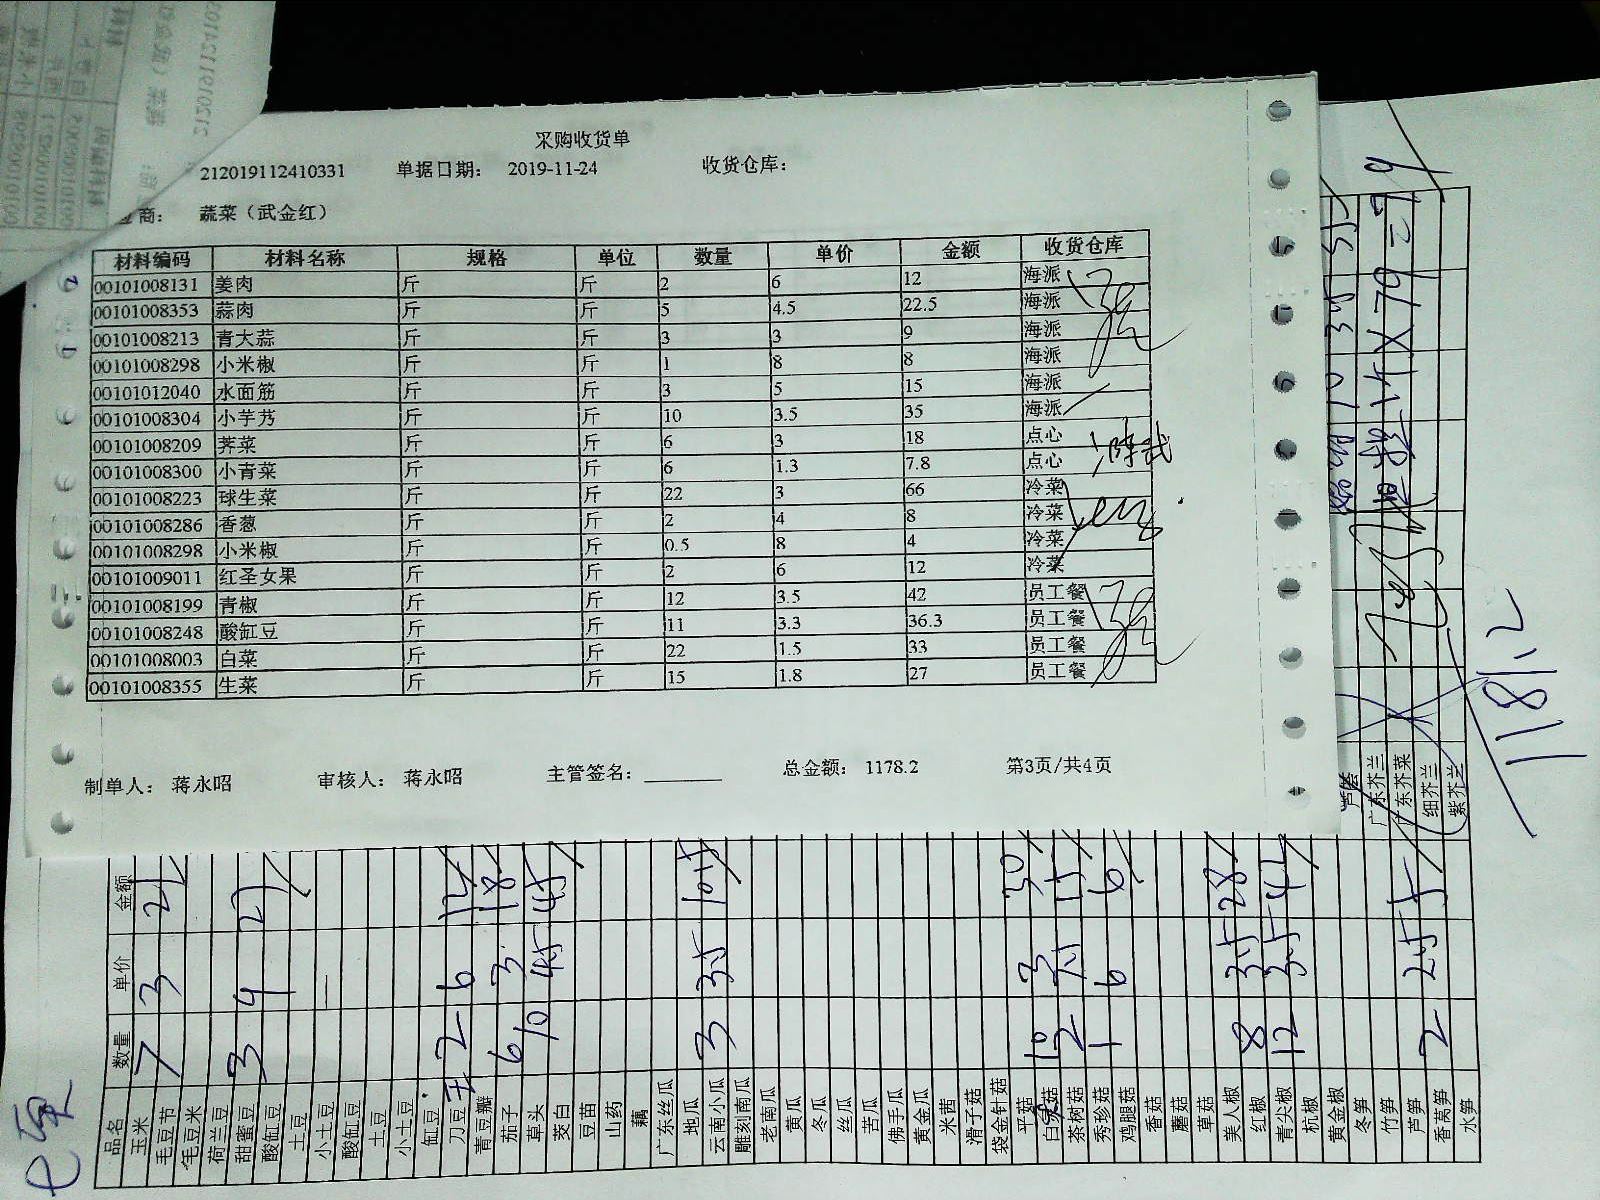 采购收货单
212019112410331 单据日期： 2019-11-24 收货仓库：
商： 蔬菜（武金红）
材料编码 材料名称 规格 单位 数量 单价 金额 收货仓库
00101008131 姜肉 斤 斤 2 6 12 海派
00101008353 蒜肉 斤 斤 5 4.5 22.5 海派
00101008213 青大蒜 斤 斤 3 3 9 海派
00101008298 小米椒 斤 斤 1 8 8 海派
00101012040 水面筋 斤 斤 3 5 15 海派
00101008304 小芋艿 斤 斤 10 3.5 35 海派
00101008209 荠菜 斤 斤 6 3 18 点心
00101008300 小青菜 斤 斤 6 1.3 7.8 点心
00101008223 球生菜 斤 斤 22 3 66 冷菜
00101008286 香葱 斤 斤 2 4 8 冷菜
00101008298 小米椒 斤 斤 0.5 8 4 冷菜
00101009011 红圣女果 斤 斤 2 6 12 冷菜
00101008199 青椒 斤 斤 12 3.5 42 员工餐
00101008248 酸缸豆 斤 斤 11 3.3 36.3 员工餐
00101008003 白菜 斤 斤 22 1.5 33 员工餐
00101008355 生菜 斤 斤 15 1.8 27 员工餐
制单人： 蒋永昭 审核人： 蒋永昭 主管签名： 总金额： 1178.2 第3页/共4页
品名 数量 单价 金额
玉米 7 3 21
毛豆节
毛豆米
荷兰豆
甜蜜豆 3 9 27
酸缸豆
土豆
小土豆
酸缸豆
土豆
小土豆
缸豆
刀豆 2 6 12
青豆瓣
茄子 6 3 18
草头 10 4.5 45
茭白
豆苗
山药
藕
广东丝瓜
地瓜
云南小瓜 3 3.5 10.5
雕刻南瓜
老南瓜
黄瓜
冬瓜
丝瓜
苦瓜
佛手瓜
黄金瓜
米茜
滑子菇
袋金针菇
平菇 10 3 30
白灵菇 2 7.5 15
茶树菇
秀珍菇 1 6 6
鸡腿菇
香菇
蘑菇
草菇
美人椒
红椒 8 3.5 28
青尖椒 12 3.5 42
杭椒
黄金椒
冬笋
竹笋
芦笋 2 2.5 5
香莴笋
水笋
芦荟
广东芥兰
广东芥菜
细芥兰
紫芥兰
1181.2